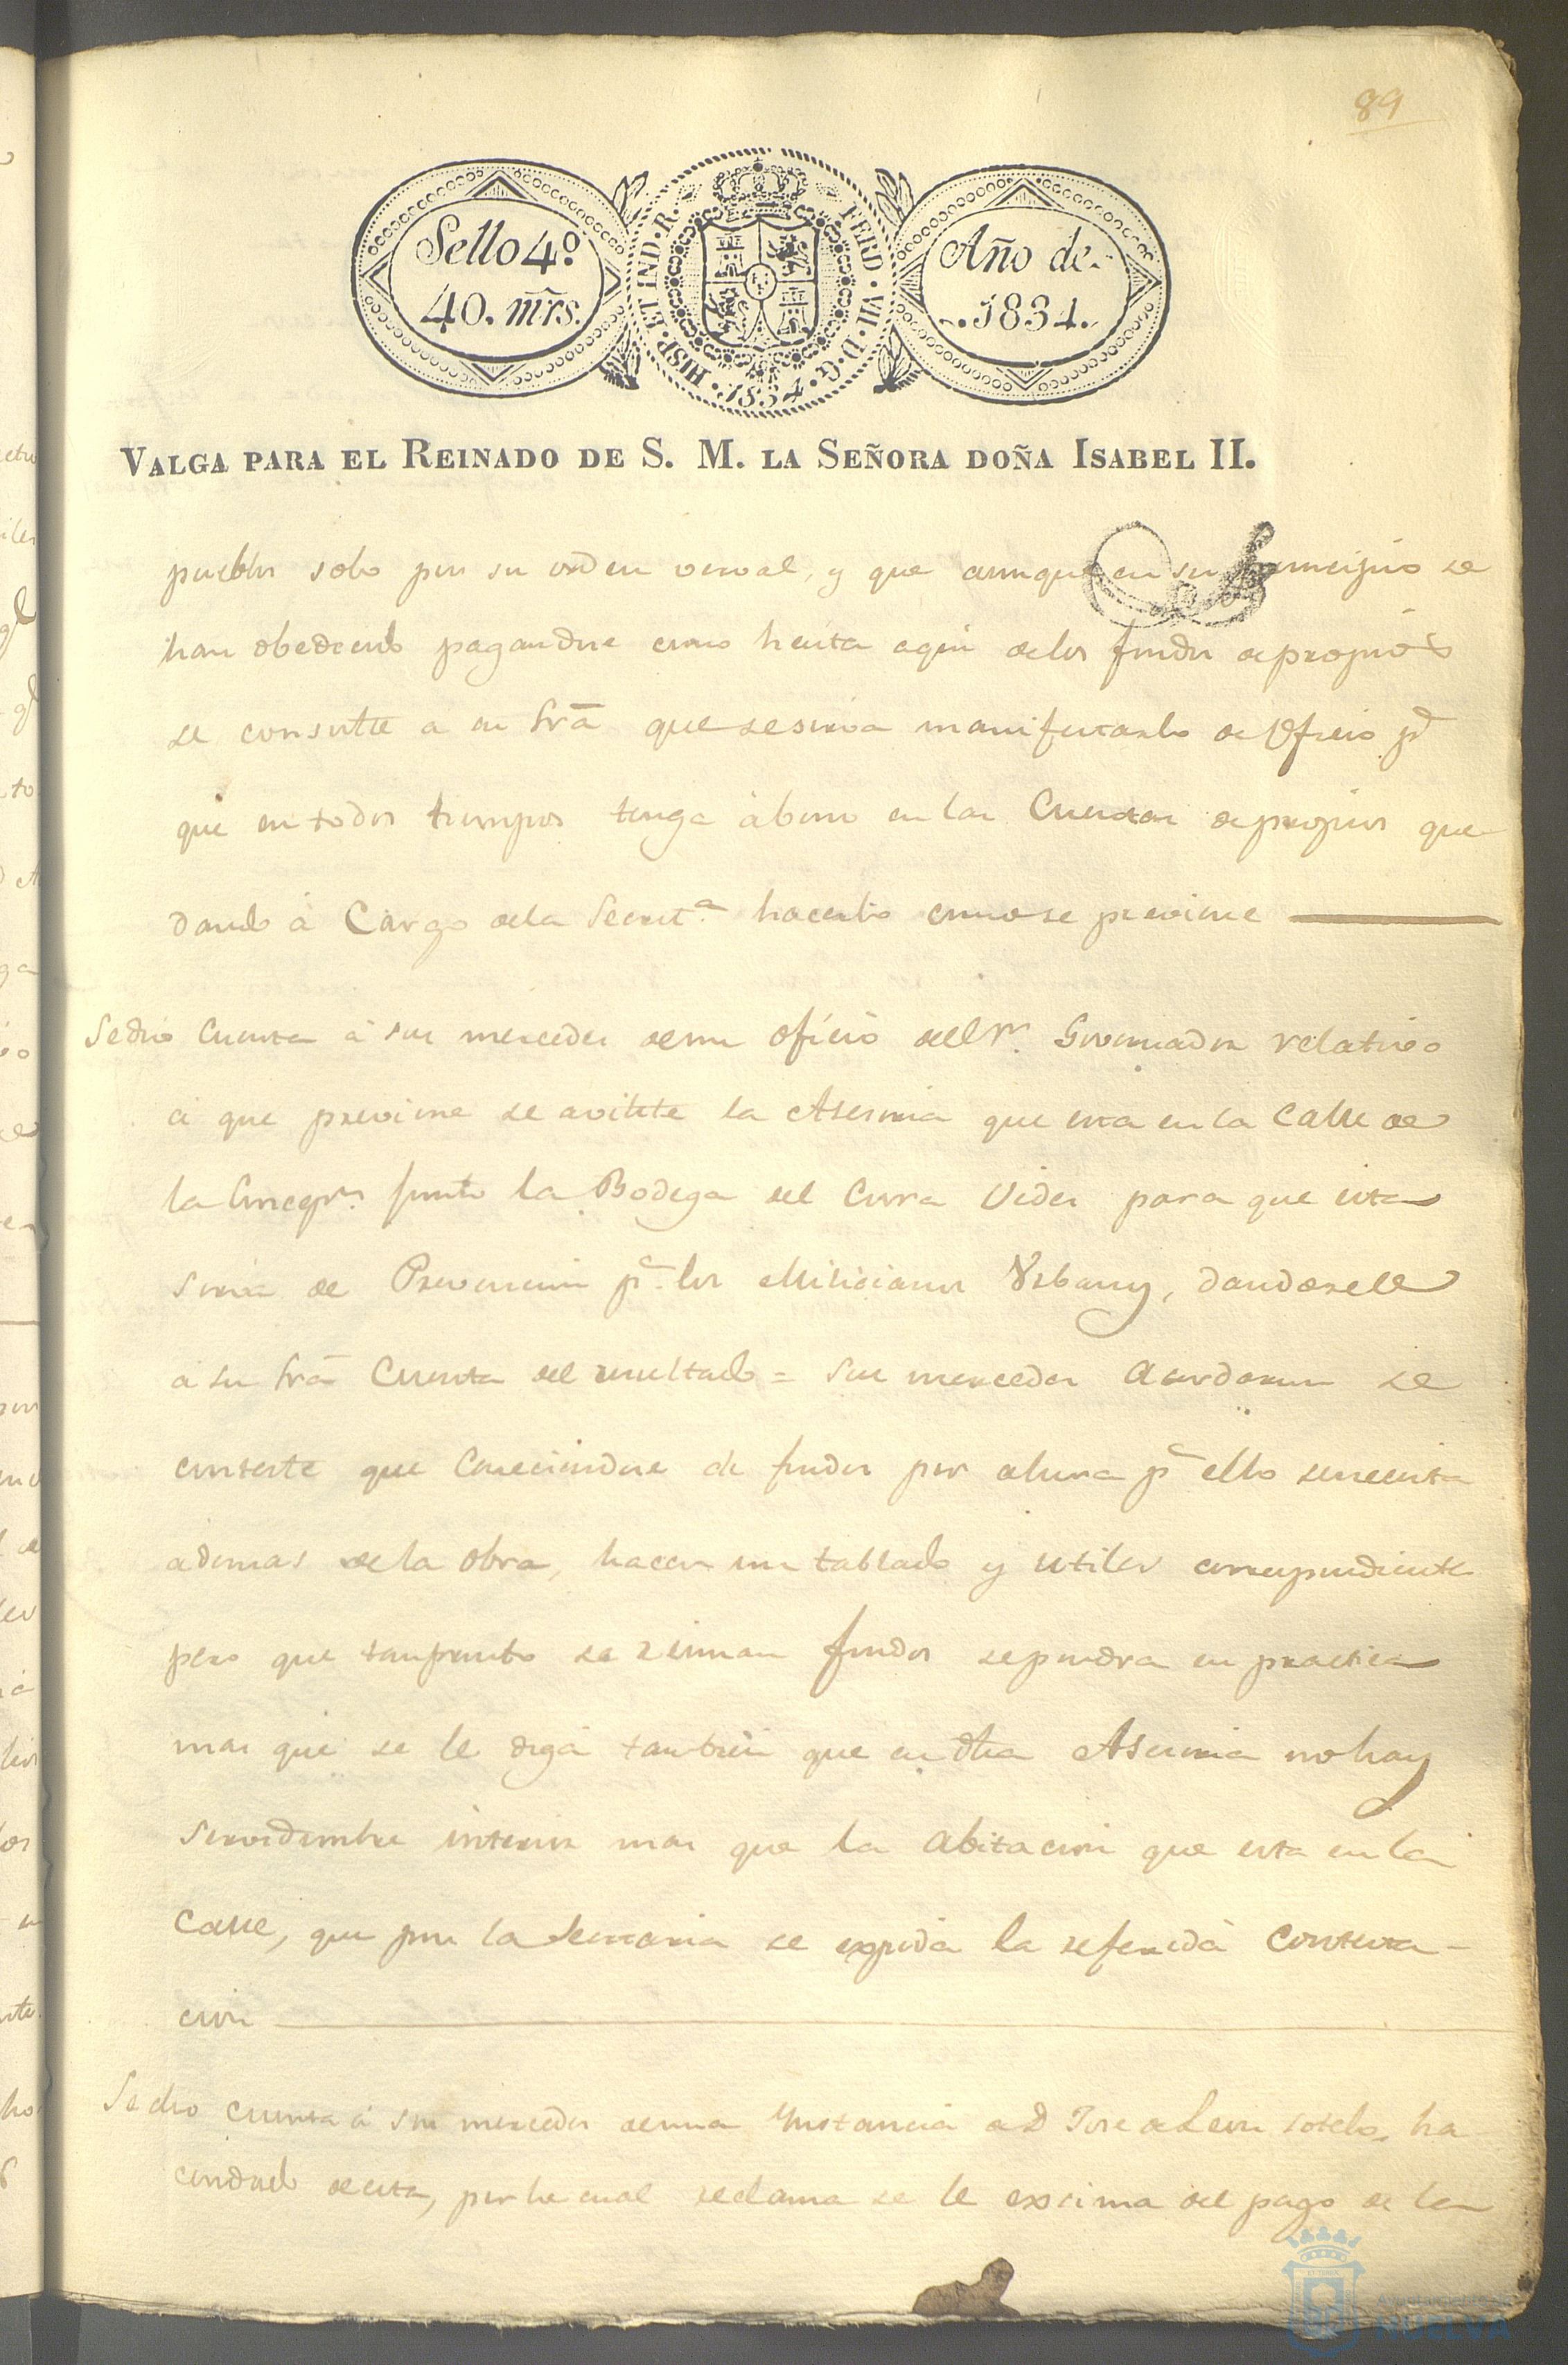 89
Sello 4º
40. mrs.
HISP. ET IND. R. FERD. VII. D. G. 1834.
Año de
1834.
VALGA PARA EL REINADO DE S. M. LA SEÑORA DOÑA ISABEL II.
pueblos solo por su orden verval, y que aunque en su principio se
han obedecido pagandose como hasta aqui delos fondos depropios
se consulte a su Sria que sesirva manifestarlo de Oficio pª
que en todos tiempos tenga abono en las Cuentas depropios que
dando á Cargo dela Secretª hacerlo como se previene
Sedio Cuenta á sus mercedes deun oficio delSr. Governador relativo
a que previene se avilite la Asesoria que esta en la Calle de
la junto la Bodega del Curra Vides para que esta
sirva de Prevencion pª los Milicianos Urbanos, dandosele
a su Sria Cuenta del resultado = Sus mercedes acordaron se
conteste que Careciendose de fondos por ahora pª ello senecesita
ademas dela obra, hacer un tablado y utiles correspondientes
pero que tanpronto se reunan fondos sepondra en practica
mas que se le diga tambien que en dha Asesoria nohay
servidumbre interior mas que la abitacion que esta en la
Calle, que por la Secretaria se expida la referida Contesta-
cion
Se dio cuenta á sus mercedes deuna Ynstancia de D Jose deLeon Sotelo, ha
cendado deesta, por la cual reclama se le exsima del pago de las
Ayuntamiento de
HUELVA